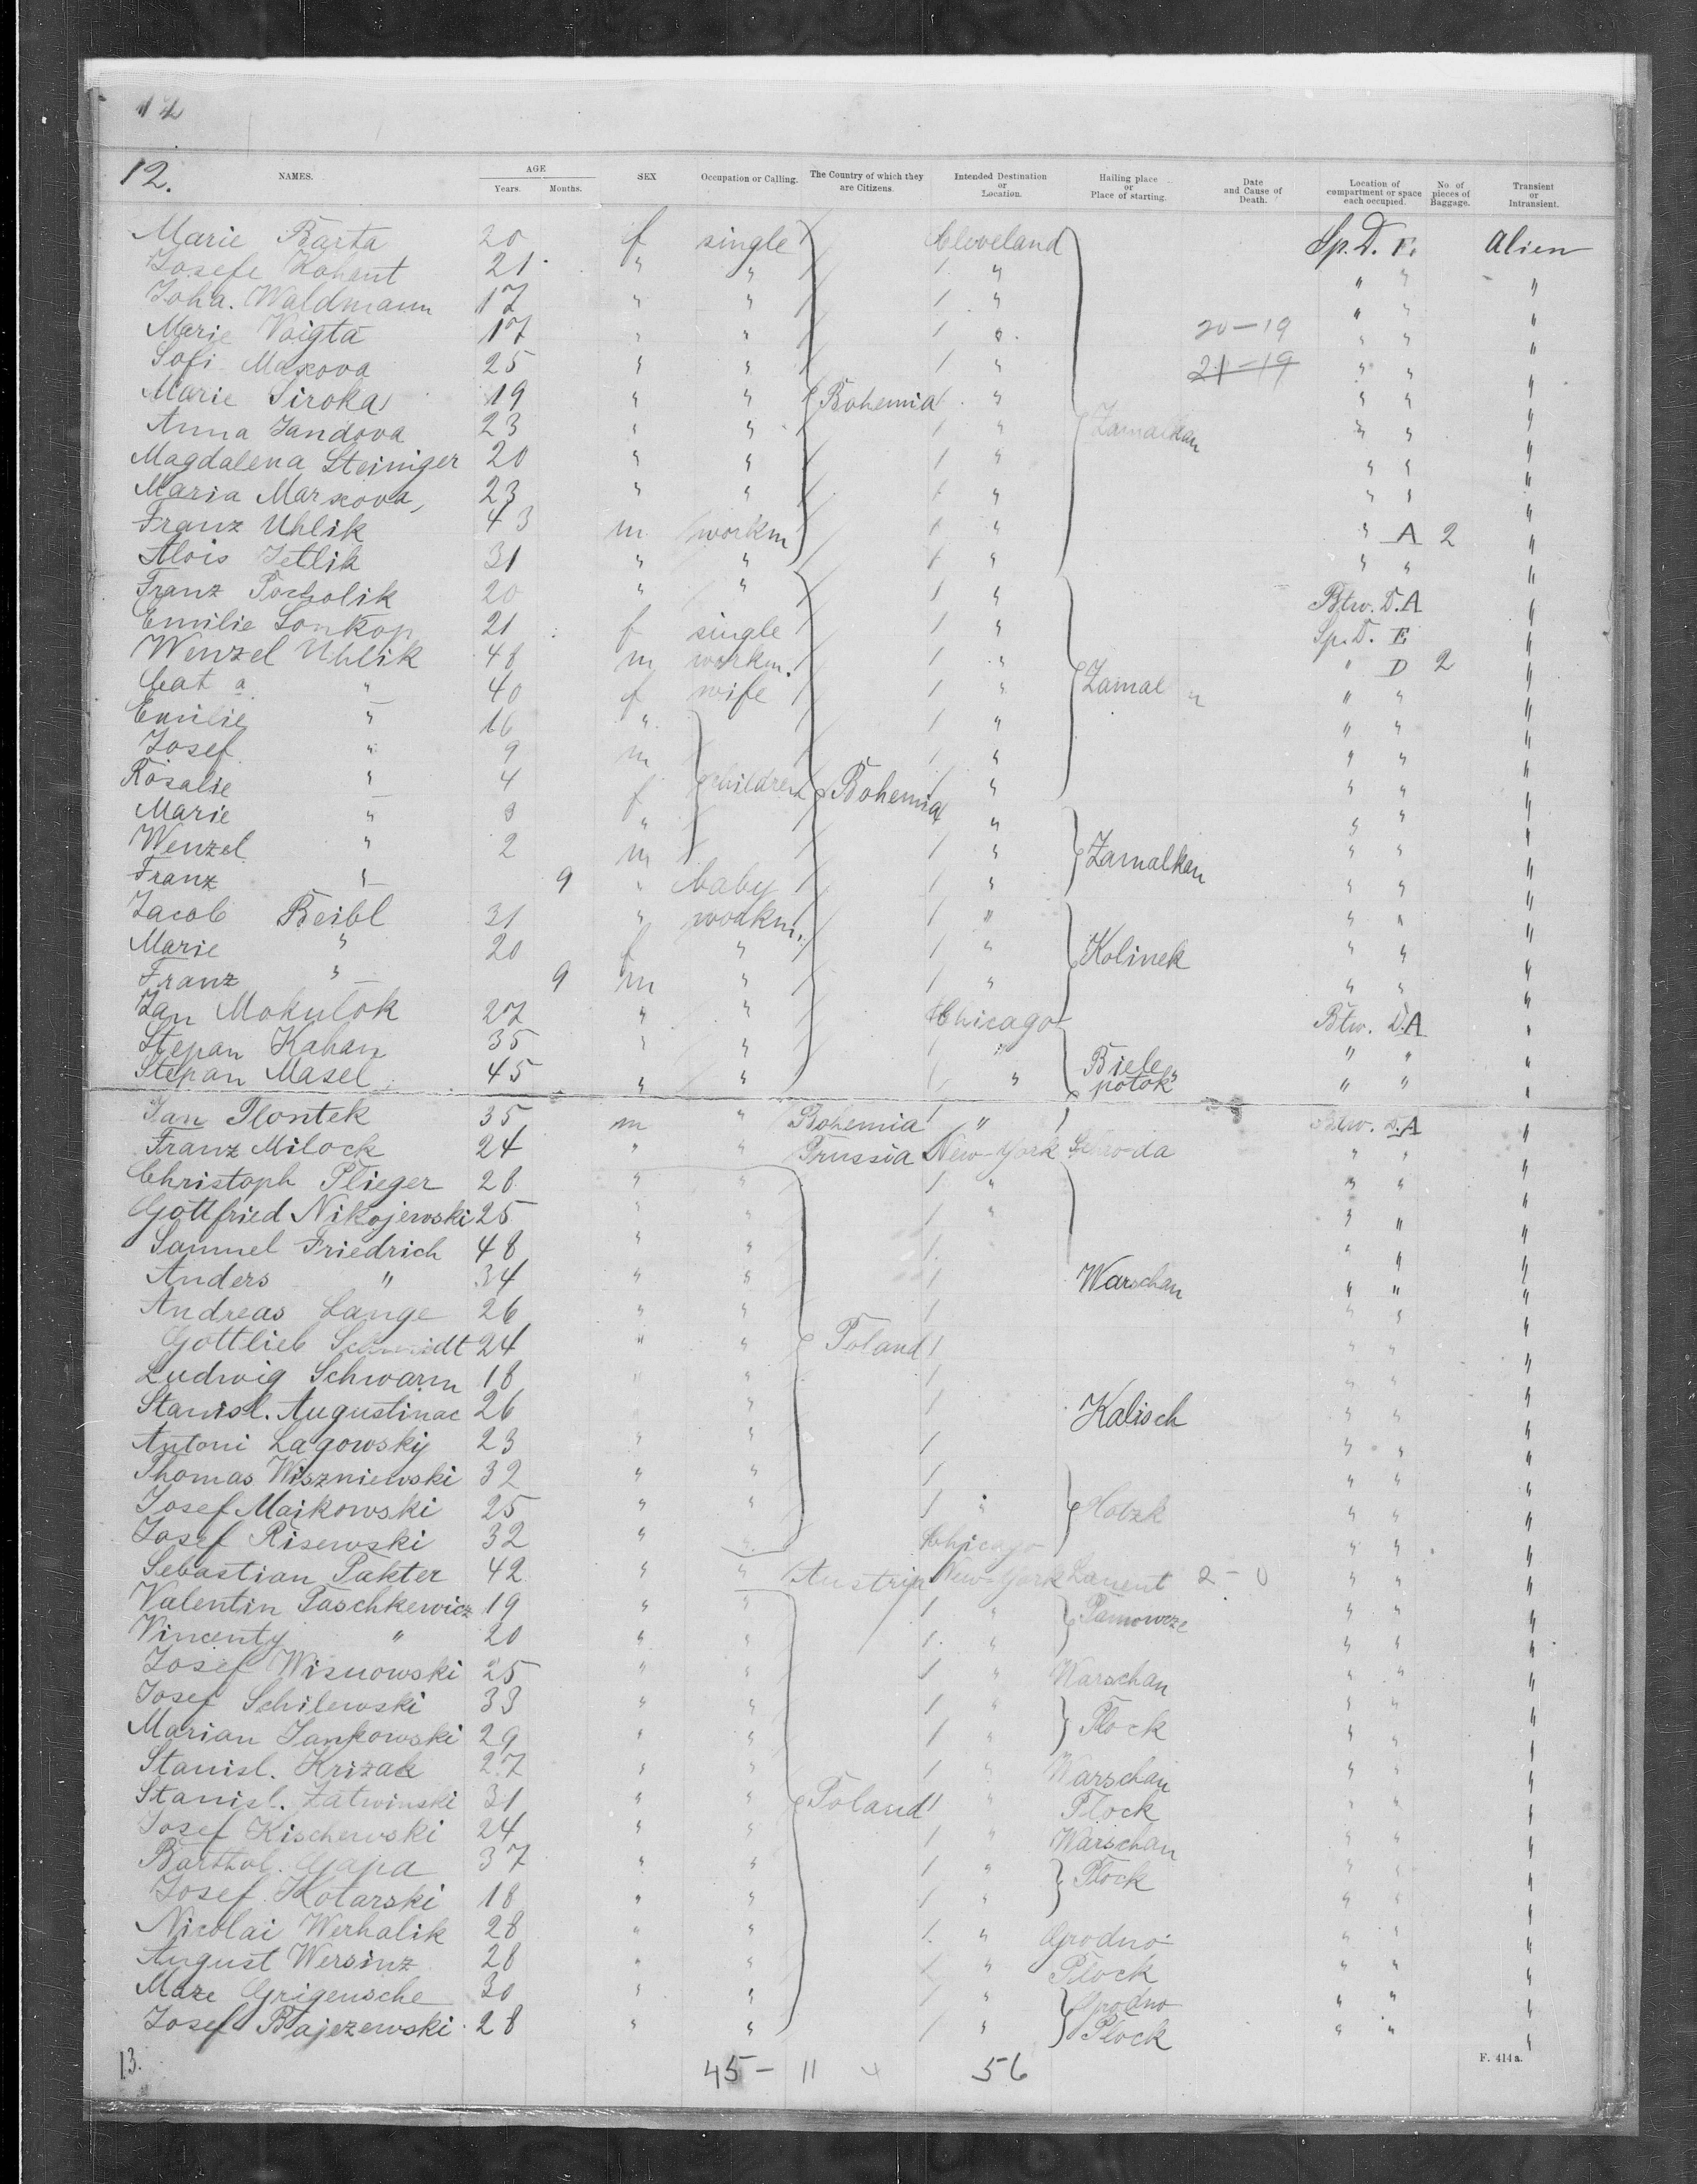 12
12.
NAMES. AGE SEX Occupation or Calling. The Country of which they are Citizens. Intended Destination or Location. Hailing place or Place of starting. Date and Cause of Death. Location of compartment or space each occupied. No. of pieces of Baggage. Transient or Intransient.
Years. Months.
Marie Barta 20 f single Cleveland Sp. D. E. Alien
Josefe Kohout 21 " " " " " "
Joha. Waldmann 17 " " " " " "
Marie Voigta 17 " " " 20-19 " " "
Sofi Maxova 25 " " " 21-19 " " "
Marie Siroka 19 " " Bohemia " " " "
Anna Jandova 23 " " " Zamalkan " " "
Magdalena Steiniger 20 " " " " " "
Maria Marxova, 23 " " " " " "
Franz Uhlik 43 m workm " " A 2 "
Alois Jetlik 31 " " " " " "
Franz 20 " " " Btw. D. A "
Emilie 21 f single " Sp. D. E "
Wenzel Uhlik 48 m workm. " " D 2 "
Cat a " 40 f wife " Zamal n " " "
Emilie " 16 " " " " "
Josef " 9 m " " " "
Rosalie " 4 f children Bohemia " " " "
Marie " 3 " " " " "
Wenzel " 2 m " Zamalkan " " "
Franz " 9 " baby " " " "
Jacob Beibl 31 " workm. " " " "
Marie " 20 f " " Kolinek " " "
Franz " 9 m " " " " "
Jan Mokulok 27 " " Chicago Btw. D. A "
Stepan Kahan 35 " " " Biele " " "
Stepan Masel 45 " " " potok " " "
Jan Plontek 35 m " Bohemia " Btw. D. A "
Franz Milock 24 " " Prussia New-York Schroda " " "
Christoph Plieger 28 " " " " " "
Gottfried Nikojewski 25 " " " " " "
Samuel Friedrich 48 " " " " "
Anders " 34 " " Warschau " " "
Andreas Lange 26 " " " " "
Gottlieb Schmidt 24 " " Poland " " "
Ludwig Schwarm 18 " " " " "
Stanisl. Augustinac 26 " Kalisch " " "
Antoni Lagowsky 23 " " " " "
Thomas Wiszniewski 32 " " " " "
Josef Maikowski 25 " " " Plotzk " " "
Josef Risewski 32 " " Chicago " " "
Sebastian Pakter 42 " " Austria New-York " " "
Valentin Paschkewicz 19 " " " " " "
Vincenty " 20 " " " " " "
Josef Wisnowski 25 " " " Warschau " " "
Josef Schilewski 33 " " " " " "
Marian Jankowski 29 " " " Plock " " "
Stanisl. Krizak 27 " " " Warschau " " "
Stanisl. Zatwinski 31 " " Poland " Plock " " "
Josef Kischewski 24 " " " Warschau " " "
Barthol. Gapa 37 " " " Plock " " "
Josef Kotarski 18 " " " " " "
Nicolai Werhalik 28 " " " Grodno " " "
August Wersinz 28 " " " Plock " " "
Maze Grigensche 30 " " " Grodno " " "
Josef Bajezewski 28 " " " Plock " " "
13. 45- 11 56 F. 414 a.